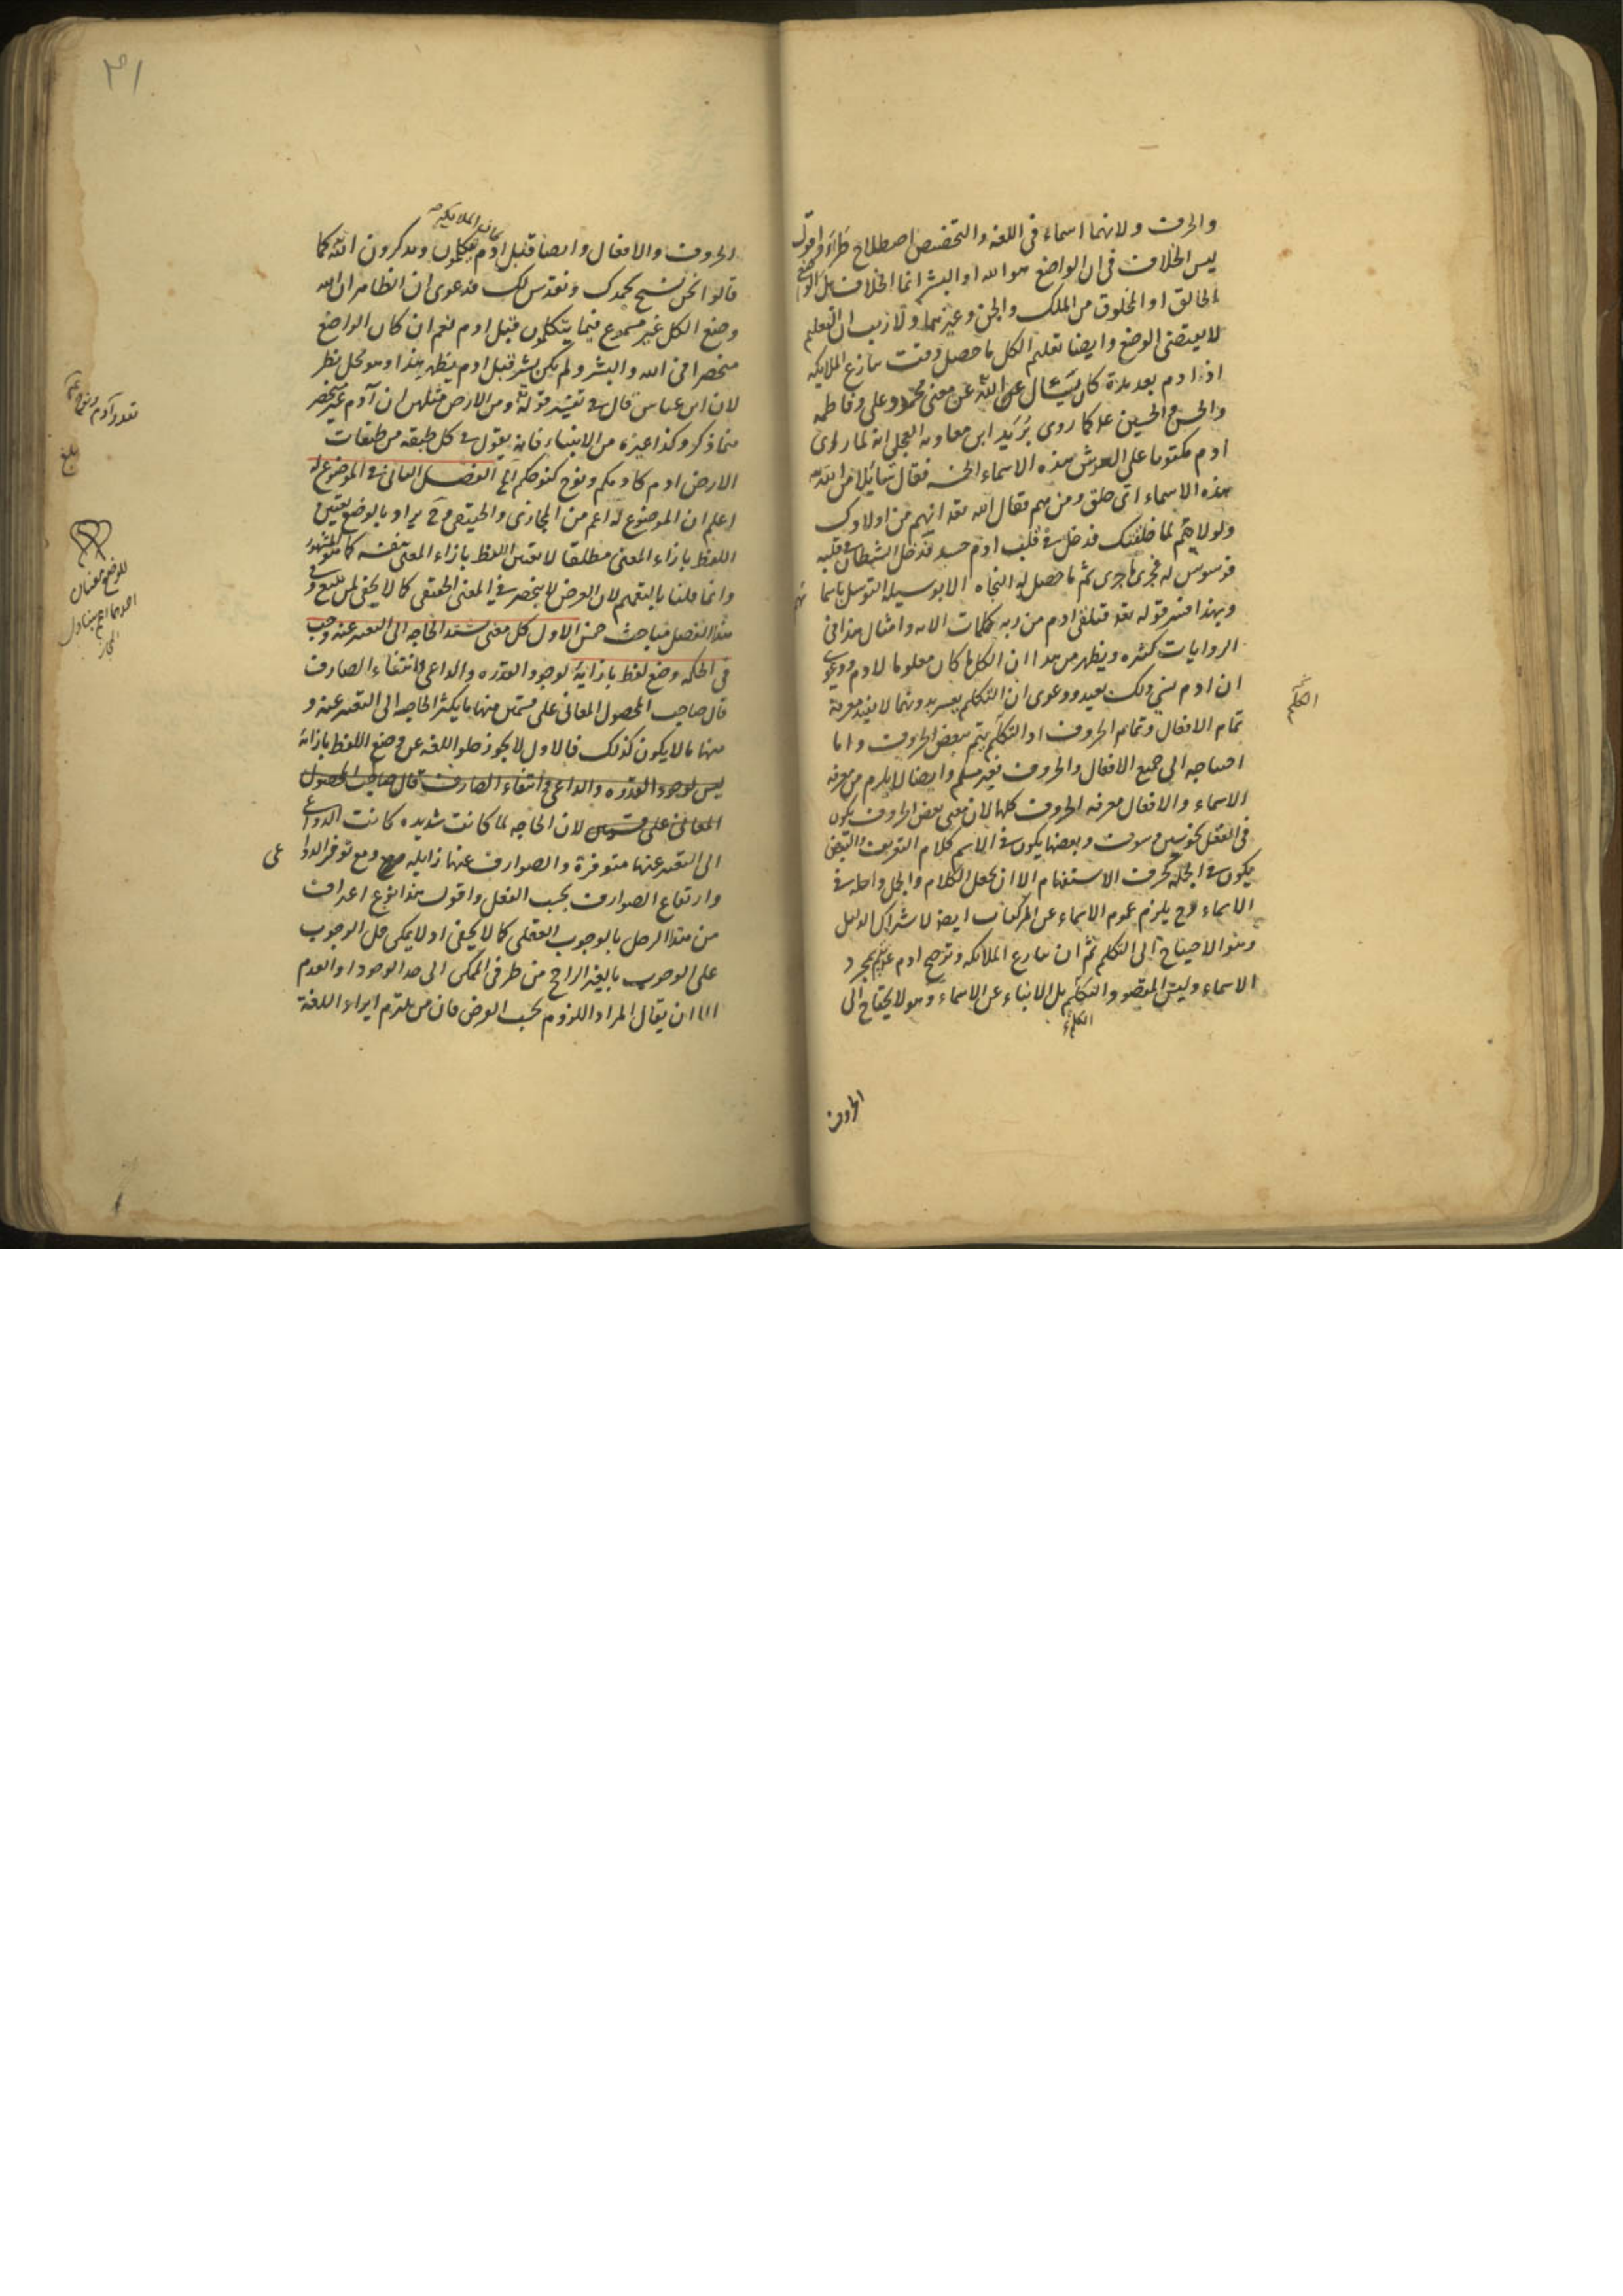 والحرف ولانهما اسماء فى اللغه والتخصيص اصطلاح طراء واقول
ليس الخلاف فى ان الواضع هو الله او البشر انما الخلاف هل الواضع
الخالق او المخلوق من الملك والجن وغيرهما ولا ريب ان التعليم
لا يقتضى الوضع وايضا تعليم الكل ما حصل وقت تنازع الملايكه
اذ ادم بعد مدة كان يسئال عن الله عن معنى محمد وعلى وفاطمه
والحسن والحسين كما روى بريد ابن معاويه العجلى انه لما راى
ادم مكتوبا على العرش هذه الاسماء الخمسه فقال سائلا من الله
هذه الاسماء اتى خلق ومن هم فقال الله تعه انهم من اولادك
ولولاهم لما خلقتك فدخل فى قلب ادم حسد فدخل الشيطان فى قلبه
فوسوس له فجرى ما جرى ثم ما حصل له النجاه الا بوسيله التوسل باسما
ئهم
وبهذا فسر قوله تعه فتلقى ادم من ربه كلمات الايه وامثال هذا فى
الروايات كثيره ويظهر من هذا ان الكل ما كان معلوما لادم ودعوى
ان ادم نسي ذلك بعيد ودعوى ان التكلم يعسر بدونهما لا يفيد معرفة
تمام الافعال وتمام الحروف اذ التكلم يتم ببعض الحروف واما
احتياجه الى جميع الافعال والحروف فغير مسلم وايضا لا يلزم من معرفه
الاسماء والافعال معرفه الحروف كلها لان معنى بعض الحروف يكون
فى الفعل كنحو سين وسوف وبعضها يكون فى الاسم كلام التعريف والبعض
يكون فى الجمله كحرف الاستفهام الا ان يجعل الكلام والجمل داخله فى
الاسماء وح يلزم عموم الاسماء عن المركبات ايضا لاشتراك الدليل
وهو الاحتياج الى التكلم ثم ان تنازع الملايكه وترجيح ادم عليهم بمجرد
الاسماء وليس المقصود التكلم بل الانباء عن الاسماء وهو لا يحتاج الى
الحروف
الحروف والافعال وايضا قبل ادم كان الملايكه يتكلمون ويذكرون الله كما
قالوا نحن نسبح بحمدك ونقدس لك فدعوى ان الظاهر ان الله
وضع الكل غير مسموع فيما يتكلمون قبل ادم نعم ان كان الواضع
منحصرا فى الله والبشر ولم يكن بشر قبل ادم يظهر هذا وهو محل نظر
لان ابن عباس قال فى تفسير قوله تعه ومن الارض مثلهن ان آدم غير منحصر
فيما ذكر وكذا غيره من الانبياء فانه يقول فى كل طبقه من طبقات
الارض ادم كادمكم ونوح كنوحكم الخ الفصل الثانى فى الموضوع له
اعلم ان الموضوع له اعم من المجازى والحقيقى وح يراد بالوضع تعيين
اللفظ بازاء المعنى مطلقا لا تعيين اللفظ بازاء المعنى بنفسه كما هو المشهور
وانما قلنا بالتعميم لان الغرض لا ينحصر فى المعنى الحقيقى كما لا يخفى لمن تتبع وفى
هذا الفصل مباحث خمس الاول كل معنى تشتد الحاجه الى التعبير عنه وجب
فى الحكمه وضع لفظ بازائه لوجود القدره والداعى وانتفاء الصارف
قال صاحب المحصول المعانى على قسمين منها ما يكثر الحاجه الى التعبير عنه و
منها ما لا يكون كذلك فالاول لا يجوز خلو اللغه عن وضع اللفظ بازائه
ليس لوجود القدره والداعى وانتفاء الصارف قال صاحب المحصول
المعانى على قسمين لان الحاجه لما كانت شديده كانت الدواعى
الى التعبير عنها متوفرة والصوارف عنها زايله ومع توفر الدوا
عى
وارتفاع الصوارف يجب الفعل واقول هذا نوع اعتراف
من هذا الرجل بالوجوب العقلى كما لا يخفى اذ لا يمكن حمل الوجوب
على الوجوب بالغير الراجح من طرفى الممكن الى حد الوجود او العدم
الا ان يقال المراد اللزوم بحسب الغرض فان من يلتزم ايراء اللغة
تعدد آدم ونوح
بلغ
للوضع معنيان
احدهما اعم يتناول
المجاز
٣١